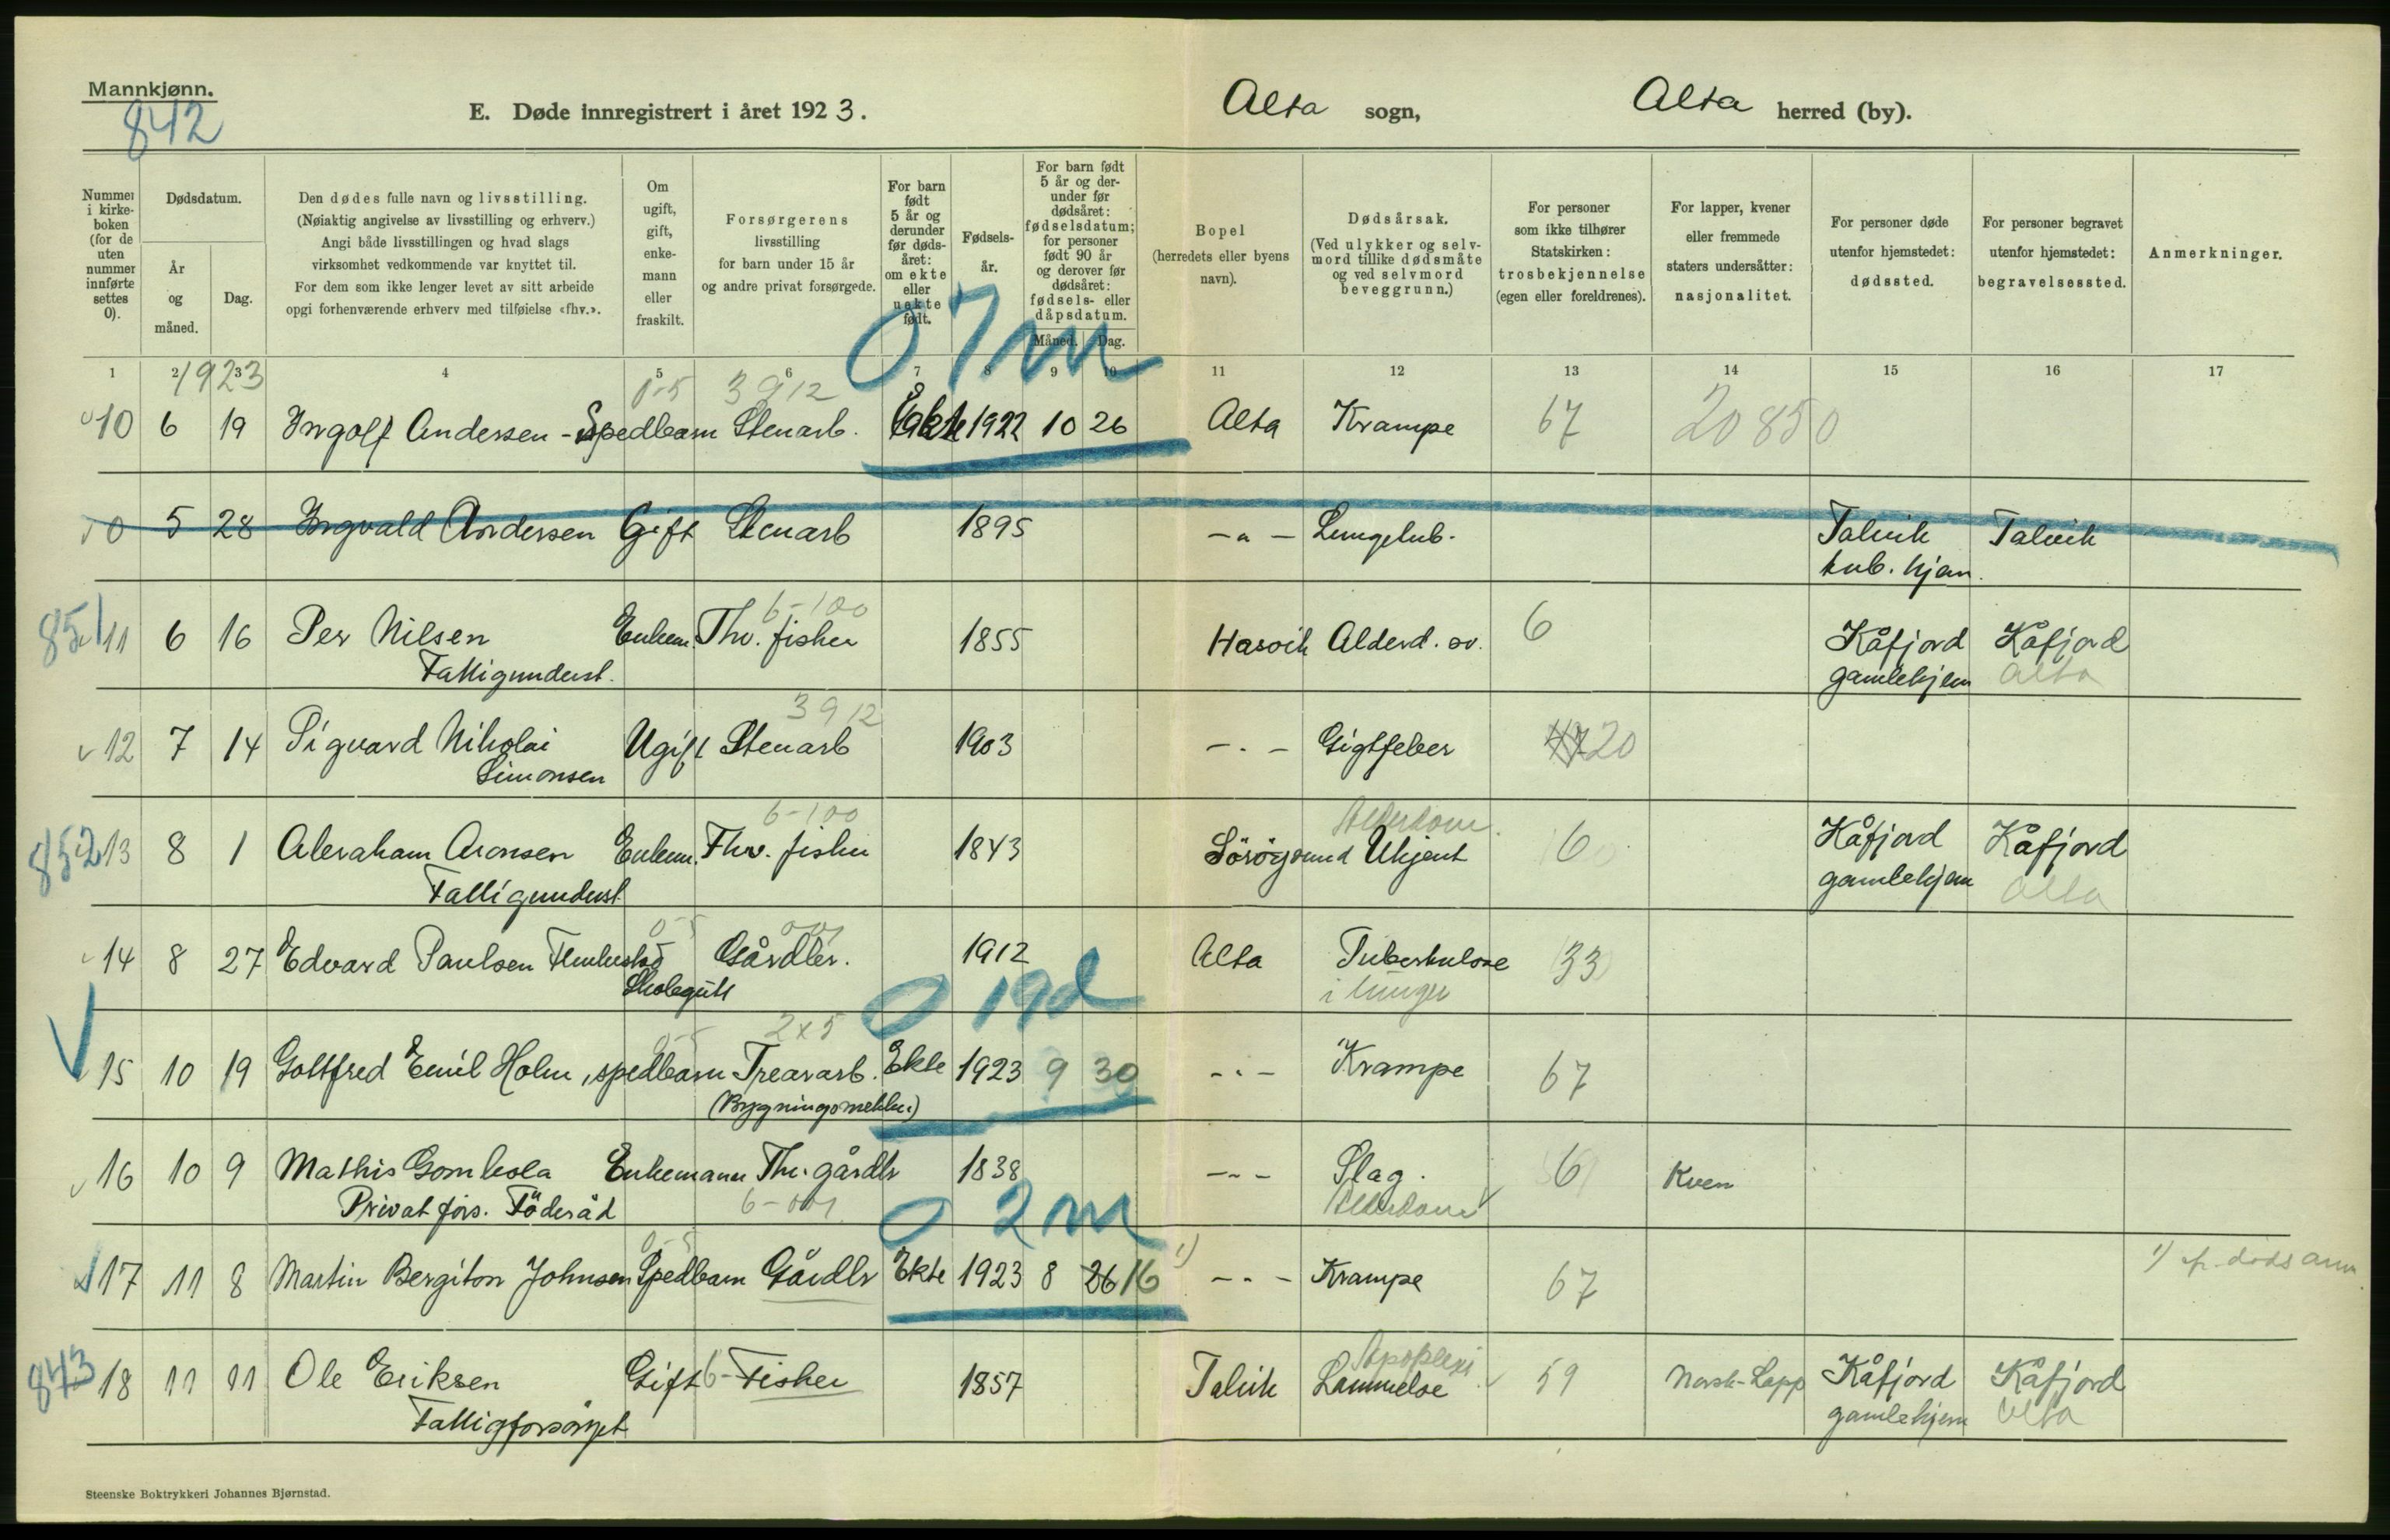 Mannkjønn.
842
E. Døde innregistrert i året 1923.
Alta sogn,
Alta herred (by).
Nummer i kirkeboken (for de uten nummer innførte settes 0).
Dødsdatum.
År og måned.
Dag.
Den dødes fulle navn og livsstilling.
(Nøiaktig angivelse av livsstilling og erhverv.)
Angi både livsstillingen og hvad slags
virksomhet vedkommende var knyttet til.
For dem som ikke lenger levet av sitt arbeide
opgi forhenværende erhverv med tilføielse «fhv.».
Om ugift, gift, enkemann eller fraskilt.
Forsørgerens
livsstilling
for barn under 15 år
og andre privat forsørgede.
For barn født 5 år og derunder før dødsåret: om ekte eller uekte født.
Fødselsår.
For barn født 5 år og derunder før dødsåret: fødselsdatum; for personer født 90 år og derover før dødsåret: fødsels- eller dåpsdatum.
Måned. Dag.
Bopel
(herredets eller byens
navn).
Dødsårsak.
(Ved ulykker og selvmord tillike dødsmåte og ved selvmord beveggrunn.)
For personer
som ikke tilhører
Statskirken:
trosbekjennelse
(egen eller foreldrenes).
For lapper, kvener
eller fremmede
staters undersåtter:
nasjonalitet.
For personer døde
utenfor hjemstedet:
dødssted.
For personer begravet
utenfor hjemstedet:
begravelsessted.
Anmerkninger.
1 2 3 4 5 6 7 8 9 10 11 12 13 14 15 16 17
1923 0-5 3912 0 7m
10 6 19 Ingolf Andersen - Spedbarn Stenarb. Ekte 1922 10 26 Alta Krampe 67 20850
0 5 28 Ingvald Andersen Gift Stenarb 1895 -"- Lungetub. Talvik Talvik
tub. hjem.
6-100
851 11 6 16 Per Nilsen Enkem. Fhv. fisker 1855 Hasvik Alderd. sv. 6 Kåfjord Kåfjord
Fattigunderst. gamlehjem Alta
3912
12 7 14 Sigvard Nikolai Ugift Stenarb 1903 -"- Gigtfeber 20
Simonsen
6-100 Alderdom.
852 13 8 1 Abraham Aronsen Enkem. Fhv. fisker 1843 Sörøysund Ukjent 6 Kåfjord Kåfjord
Fattigunderst gamlehjem Alta
0-5 001
14 8 27 Edvard Paulsen Gårdbr. 1912 Alta Tuberkulose 33
Skolegutt i lunger
0 19d
0-5 2x5
15 10 19 Gottfred Emil Holm, spedbarn Trearb. Ekte 1923 9 30 -"- Krampe 67
(Bygningssnekker)
16 10 9 Mathis Gombola Enkemann Fhv. gårdbr 1838 -"- Slag. 6 Kven
Privat fors. Föderåd 6-001 Alderdom
0 2m
0-5
17 11 8 Martin Bergiton Johnsen Spedbarn Gårdbr Ekte 1923 8 26 16 1) -"- Krampe 67 1) dødsanm.
Apopleksi
843 18 11 11 Ole Eriksen Gift 6- Fisker 1857 Talvik Lammelse 59 Norsk-Lapp Kåfjord Kåfjord
Fattigforsørget gamlehjem Alta
Steenske Boktrykkeri Johannes Bjørnstad.